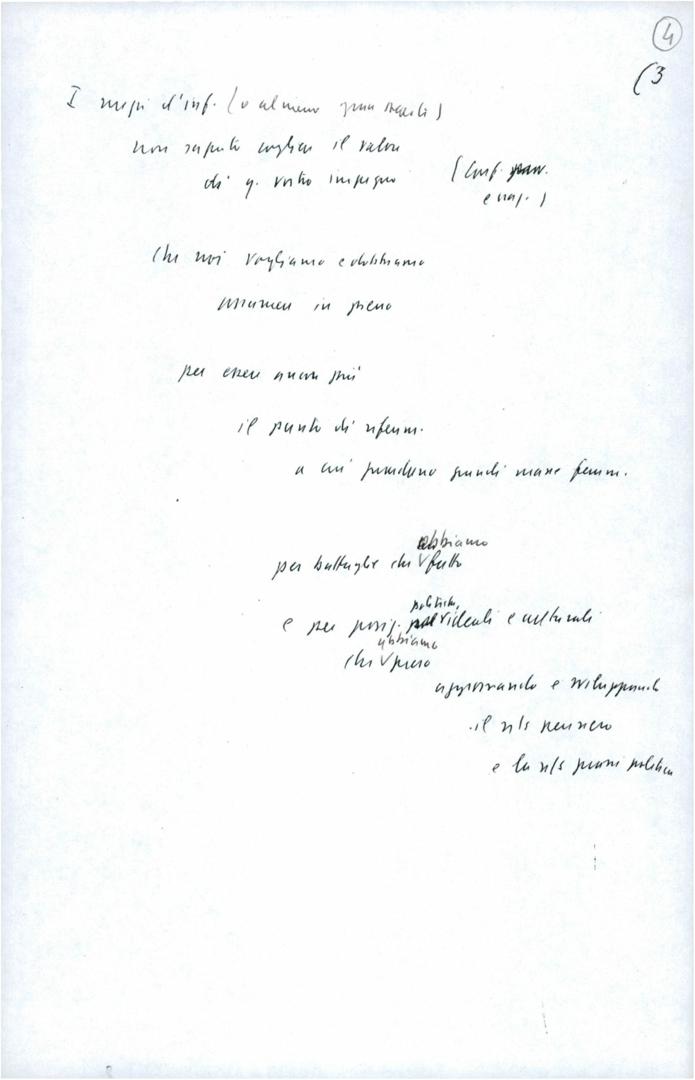 4
(3
I mezzi d'inf. (o almeno gran parte di)
non saputo cogliere il valore
di q. vostro impegno
(Conf. prov.
e naz.)
che noi vogliamo e dobbiamo
assumere in pieno
per essere ancora più
il punto di riferim.
a cui guardano grandi masse femm.
per battaglie che abbiamo fatto
e per posiz. politiche, ideali e culturali
che abbiamo preso
aggiornando e sviluppando
il n/s pensiero
e la n/s prassi politica